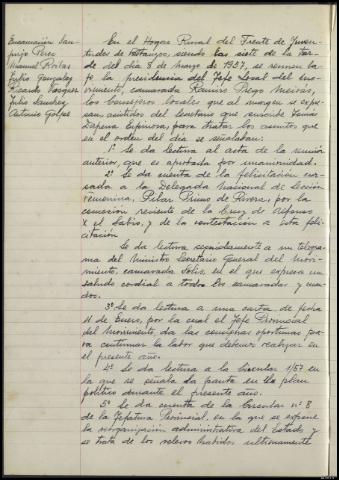 Encarnación San-
jurjo Pérez
Manuel Roilas
Julio González
Ricardo Vázquez
Julio Sánchez
Antonio Golpe
En el Hogar Rural del Frente de Juven-
tudes de Betanzos, siendo las siete de la tar-
de del día 8 de marzo de 1957, se reunen ba-
jo la presidencia del Jefe Local del Mo-
vimiento, camarada Ramiro Diego Meirás,
los consejeros locales que al margen se expre-
san, asistidos del Secretario que suscribe Tomás
Dapena Espinosa, para tratar los asuntos que
en el orden del día se señalaban:
1º Se da lectura al acta de la reunión
anterior, que es aprobada por unanimidad.
2º Se da cuenta de la felicitación cur-
sada a la Delegada Nacional de Sección
Femenina, Pilar Primo de Rivera, por la
concesión reciente de la Cruz de Alfonso
X el Sabio, y de la contestación a esta feli-
citación.
Se da lectura seguidamente a un telegra-
ma del Ministro Secretario General del Movi-
miento, camarada Solís, en el que expresa un
saludo cordial a todos los camaradas y man-
dos.
3º Se da lectura a una carta, de fecha
11 de Enero, por la cual el Jefe Provincial
del Movimiento, da las consignas oportunas, pa-
ra continuar la labor que debemos realizar en
el presente año.
4º Se da lectura a la Circular 1/57 en
la que se señala la pauta en el plan
político durante el presente año.
5º Se da cuenta de la Circular nº 8
de la Jefatura Provincial, en la que se expone
la reorganización administrativa del Estado y
se trata de los relevos habidos ultimamente